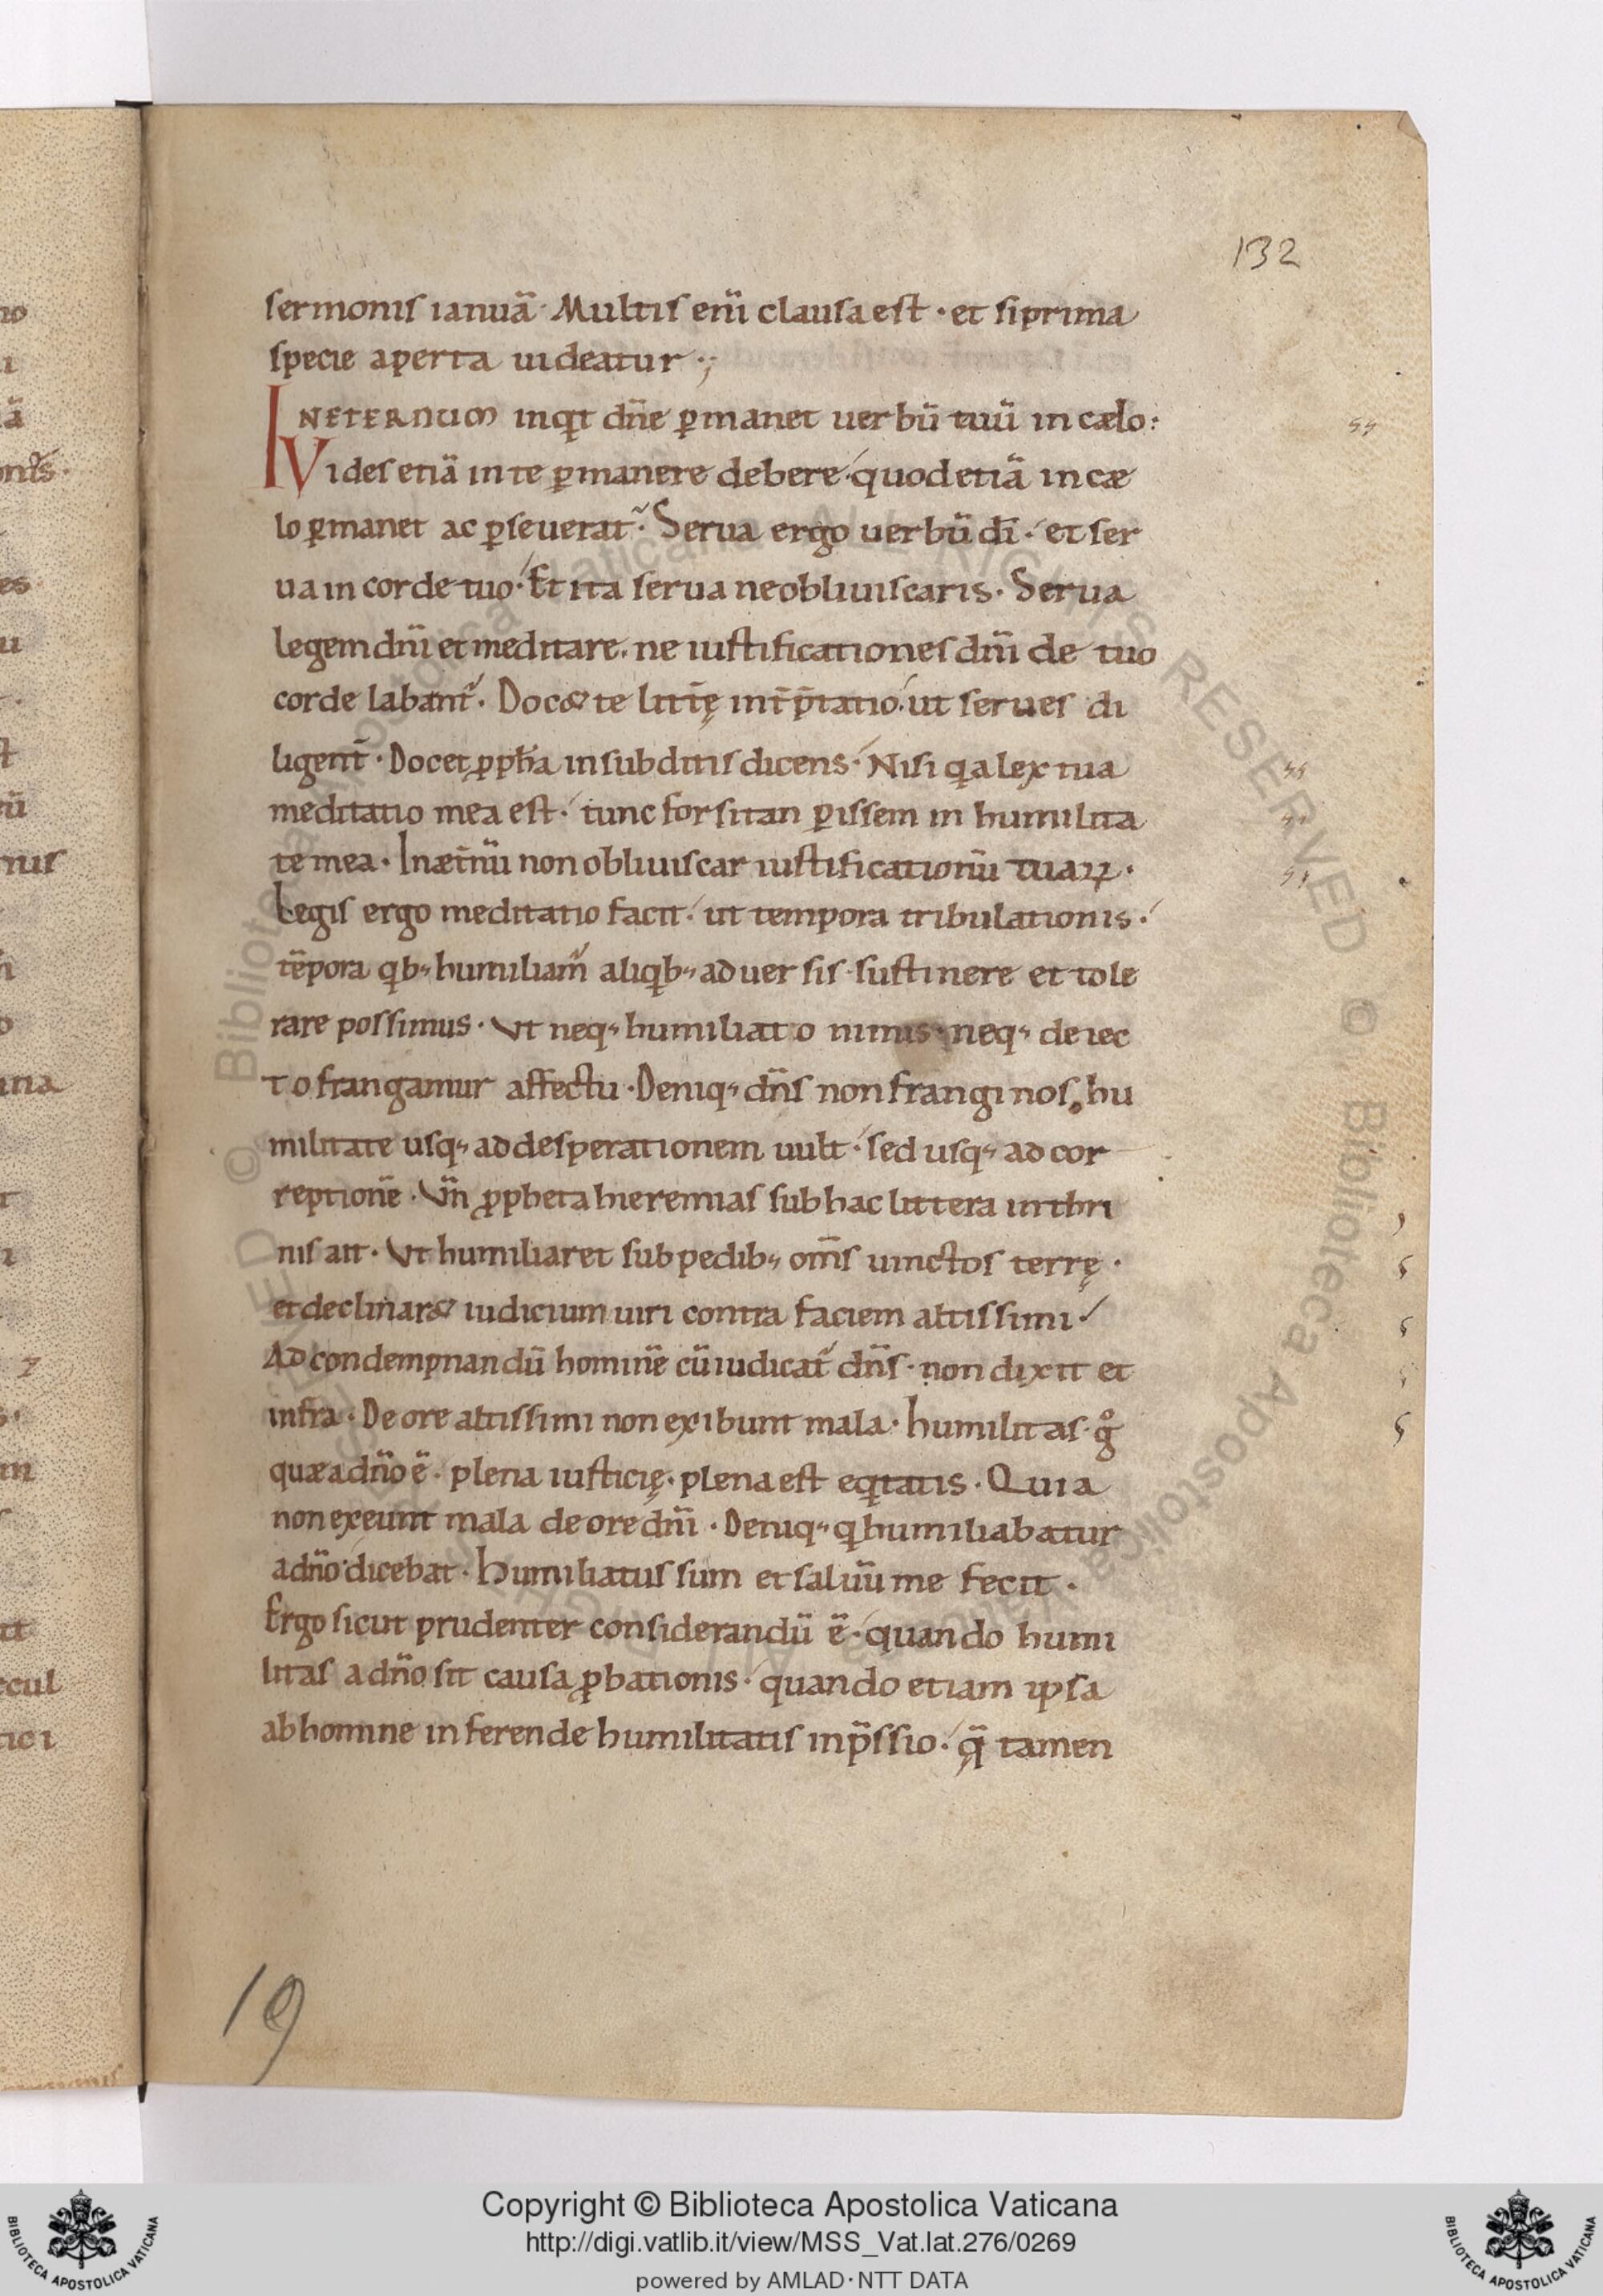 132
sermonis ianuā· Multis eni̅ clausa est · et si prima
specie aperta uideatur ·;
IN ETERNUM inqͥt dn̄e ꝑmanet uerbū tuū in cælo:
Vides etiā in te ꝑmanere debere· quod etiā in cæ
lo ꝑmanet ac ꝑseuerat~· Serua ergo uerbū di̅ · et ser
ua in corde tuo · Et ita serua ne obliuiscaris · Serua
legem dn̄i et meditare· ne iustificationes dn̄i de tuo
corde labant᷑ · Docet te litt̄ę int̄p̄tatio· ut serues di
ligent̄ · Docet ꝓph̄a in subditis dicens· Nisi qͥa lex tua
meditatio mea est · tunc forsitan ꝑissem in humilita
te mea · In æt̄nū non obliuiscar iustificationū tuaꝝ ·
Legis ergo meditatio facit · ut tempora tribulationis ·
tēpora qͥb; humiliam᷑ aliqͥb; aduersis · sustinere et tole
rare possimus · Vt neq; humiliato nimis · neq; deiec
to frangamur affectu · Deniq; dn̄s non frangi nos hu
militate usq; ad desperationem uult · sed usq; ad cor
reptionē · Vn̄ ꝓpheta hieremias sub hac littera in thri
nis ait · Vt humiliaret sub pedib; om̄s uinctos terrę ·
et declinaret iudicium uiri contra faciem altissimi ·
Ad condempnandū hominē cū iudicat᷑ dn̄s · non dixit et
infra · De ore altissimi non exibunt mala · humilitas · gͦ
quæ a dn̄o ē · plena iusticię · plena est eqͥtatis · Quia
non exeunt mala de ore dn̄i · Deniq; qͥ humiliabatur
a dn̄o dicebat · humiliatus sum et saluū me fecit ·
Ergo sicut prudenter considerandū ē · quando humi
litas a dn̄o sit causa ꝓbationis · quando etiam ipsa
ab homine inferende humilitatis inp̄ssio · q̄ tamen
19
Copyright © Biblioteca Apostolica Vaticana
http://digi.vatlib.it/view/MSS_Vat.lat.276/0269
powered by AMLAD·NTT DATA